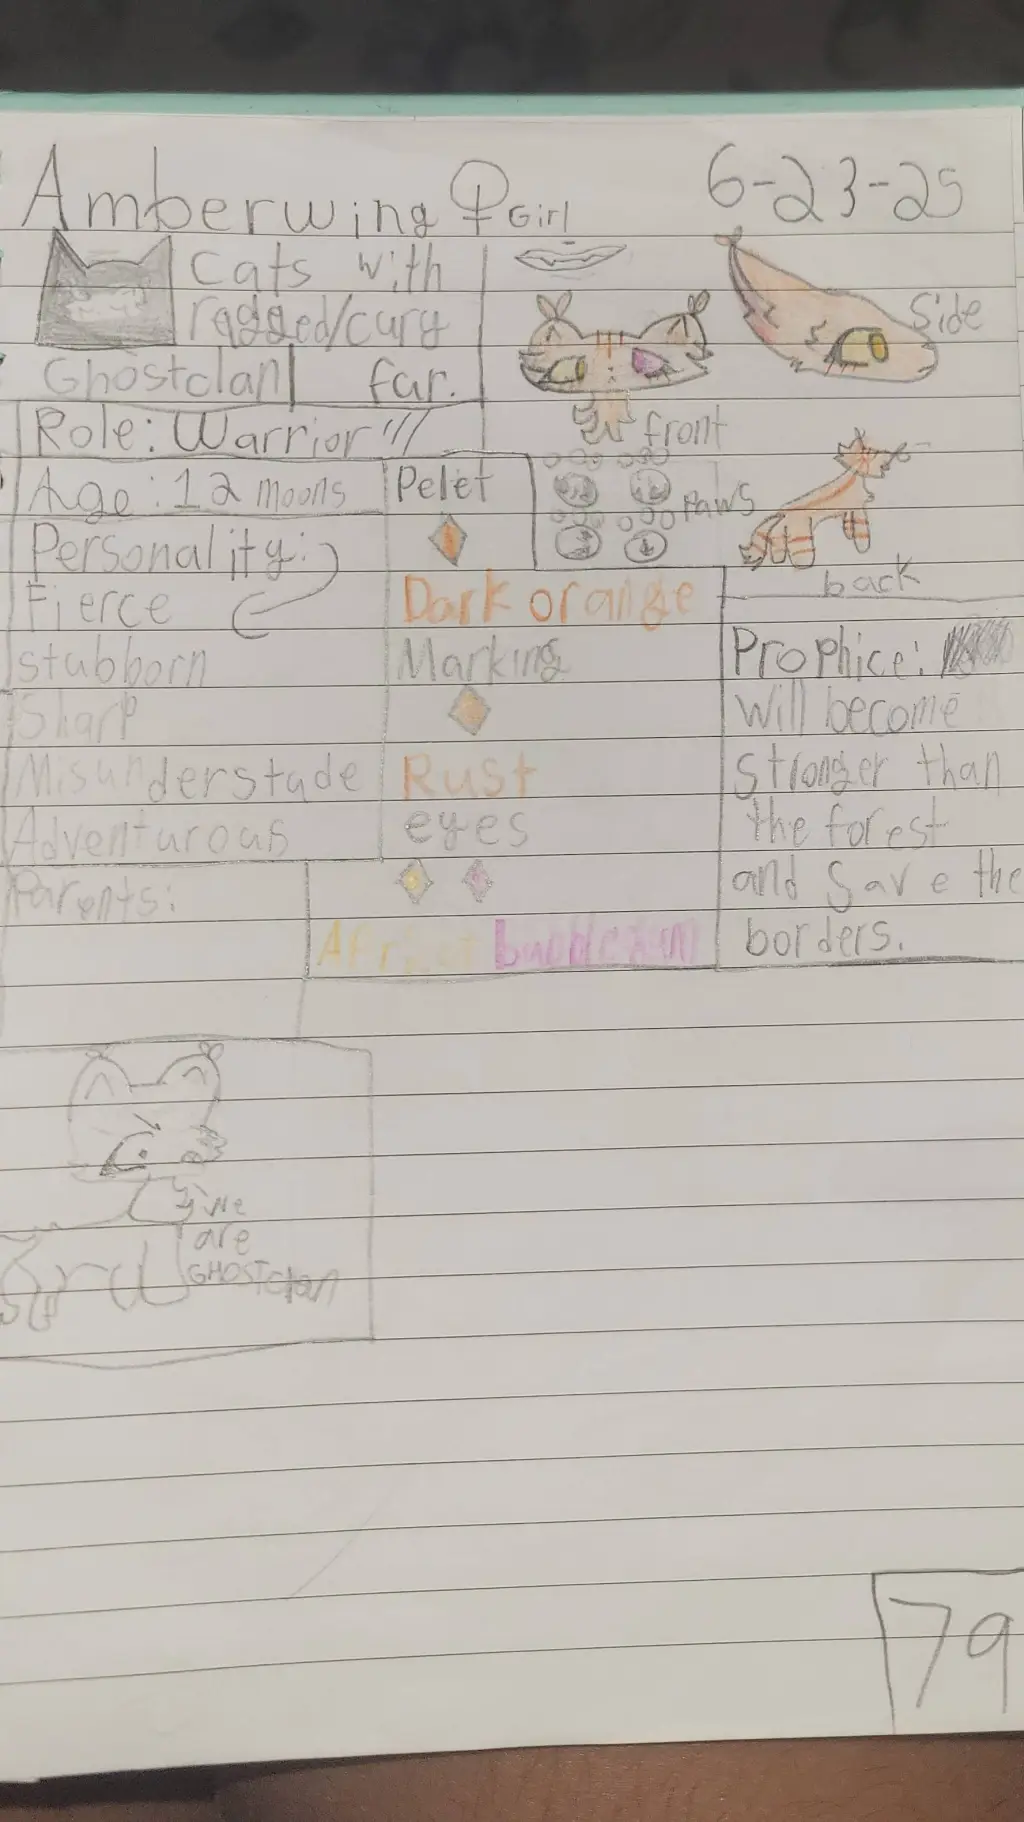 Amberwing ♀ Girl
6-23-25
Cats with
ragged/cury
Ghostclan
far.
Side
front
Role: Warrior
Age: 12 moons
Pelet
Paws
back
Personality:
Fierce
stubborn
Sharp
Misunderstade
Adventurous
Dark orange
Marking
Rust
eyes
bubblegum
Prophice:
will become
stronger than
the forest
and Save the
borders.
Parents:
We
are
GHOSTclan
79